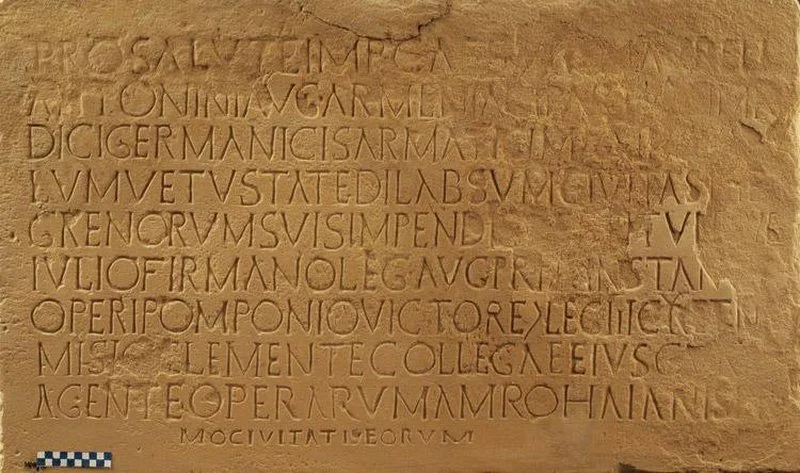 PROSALVTEIMPCA
ANTONINIAVGARMENIACI
DICIGERMANICISARMATICI
LVMVETVSTATEDILABSVMCIVITAS
GRENORVMSVISIMPENDI TV
IVLIOFIRMANOLEGAVGPRPR INSTAN
OPERIPOMPONIOVICTORE>LEGIIICY
MISIOCLEMENTECOLLEGAEEIVSC
AGENTEOPERARVMAMROHAIANIS
MOCIVITATISEORVM